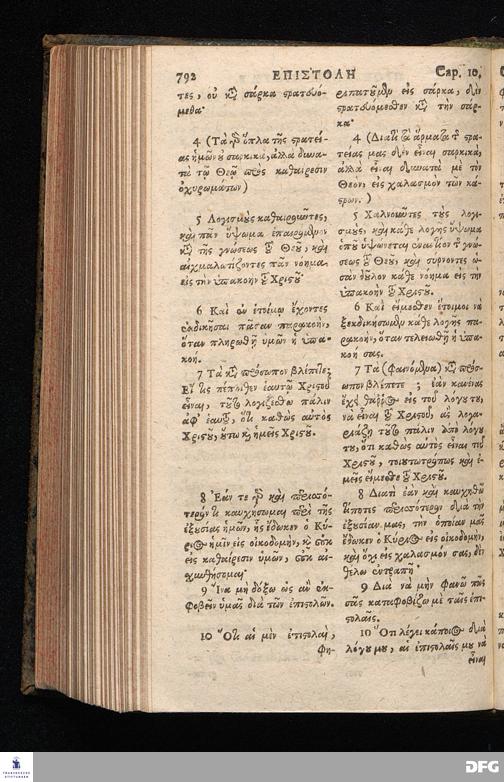 792 ΕΠΙΣΤΟΛΗ Cap. 10.
τες, οὐ κατὰ σάρκα στρατευό-
μεθα·
4 (Τὰ γὰρ ὅπλα τῆς στρατεί-
ας ἡμῶν οὐ σαρκικὰ, ἀλλὰ δυνα-
τὰ τῷ Θεῷ πρὸς καθαίρεσιν
ὀχυρωμάτων)
5 Λογισμοὺς καθαιροῦντες,
καὶ πᾶν ὕψωμα ἐπαιρόμενον
κατὰ τῆς γνώσεως τοῦ Θεοῦ, καὶ
αἰχμαλωτίζοντες πᾶν νόημα
εἰς τὴν ὑπακοὴν τοῦ Χριστοῦ·
6 Καὶ ἐν ἑτοίμῳ ἔχοντες
ἐκδικῆσαι πᾶσαν παρακοὴν,
ὅταν πληρωθῇ ὑμῶν ἡ ὑπα-
κοή.
7 Τὰ κατὰ πρόσωπον βλέπετε;
Εἴ τις πέποιθεν ἑαυτῷ Χριστοῦ
εἶναι, τοῦτο λογιζέσθω πάλιν
ἀφ' ἑαυτοῦ, ὅτι καθὼς αὐτὸς
Χριστοῦ, οὕτω καὶ ἡμεῖς Χριστοῦ.
8 Ἐάν τε γὰρ καὶ περισσό-
τερόν τι καυχήσωμαι περὶ τῆς
ἐξουσίας ἡμῶν, ἧς ἔδωκεν ὁ Κύ-
ριος ἡμῖν εἰς οἰκοδομὴν, καὶ οὐκ
εἰς καθαίρεσιν ὑμῶν, οὐκ αἰ-
σχυνθήσομαι·
9 Ἵνα μὴ δόξω ὡς ἂν ἐκ-
φοβεῖν ὑμᾶς διὰ τῶν ἐπιστολῶν.
10 Ὅτι αἱ μὲν ἐπιστολαὶ,
φη-
στρατευόμεσθεν κατὰ τὴν σάρ-
κα·
4 (Διατὶ τὰ ἄρματα τῆς στρα-
τείας μας δὲν εἶναι σαρκικὰ,
ἀλλὰ εἶναι δυνατὰ μὲ τὸν
Θεὸν, εἰς χαλασμὸν τῶν κά-
στρων.)
5 Χαλνοῦντες τοὺς λογι-
σμοὺς, καὶ κάθε λογῆς ὕψωμα
ὁποῦ ὑψώνεται ἐναντίον τῆς γνώ-
σεως τοῦ Θεοῦ, καὶ σύρνοντες ὡ-
σὰν δοῦλον κάθε νόημα εἰς τὴν
ὑπακοὴν τοῦ Χριστοῦ.
6 Καὶ εἴμεσθεν ἕτοιμοι νὰ
ξεκδικήσωμεν κάθε λογῆς πα-
ρακοὴν, ὅταν τελειωθῇ ἡ ὑπα-
κοή σας.
7 Τὰ (φαινόμενα) κατὰ πρόσ-
ωπον βλέπετε; ἐὰν κανένας
ἔχῃ θάρρος εἰς τοῦ λόγου του,
νὰ εἶναι τοῦ Χριστοῦ, ἂς λογα-
ριάζῃ τοῦτο πάλιν ἀπὸ λόγου
του, ὅτι καθὼς αὐτὸς εἶναι τοῦ
Χριστοῦ, τοιουτοτρόπως καὶ ἐ-
μεῖς εἴμεσθε τοῦ Χριστοῦ.
8 Διατὶ ἐὰν καὶ καυχηθῶ
τίποτες περισσότερον διὰ τὴν
ἐξουσίαν μας, τὴν ὁποίαν μας
ἔδωκεν ὁ Κύριος εἰς οἰκοδομὴν,
καὶ ὄχι εἰς χαλασμόν σας, δὲν
θέλω ἐντραπῆ·
9 Διὰ νὰ μὴν φανῶ πῶς
σᾶς καταφοβίζω μὲ ταῖς ἐπι-
στολαῖς.
10 Ὅτι λέγει κάποιος διὰ
λόγου μου, αἱ ἐπιστολαῖς μου νὰ
εἶναι
DFG